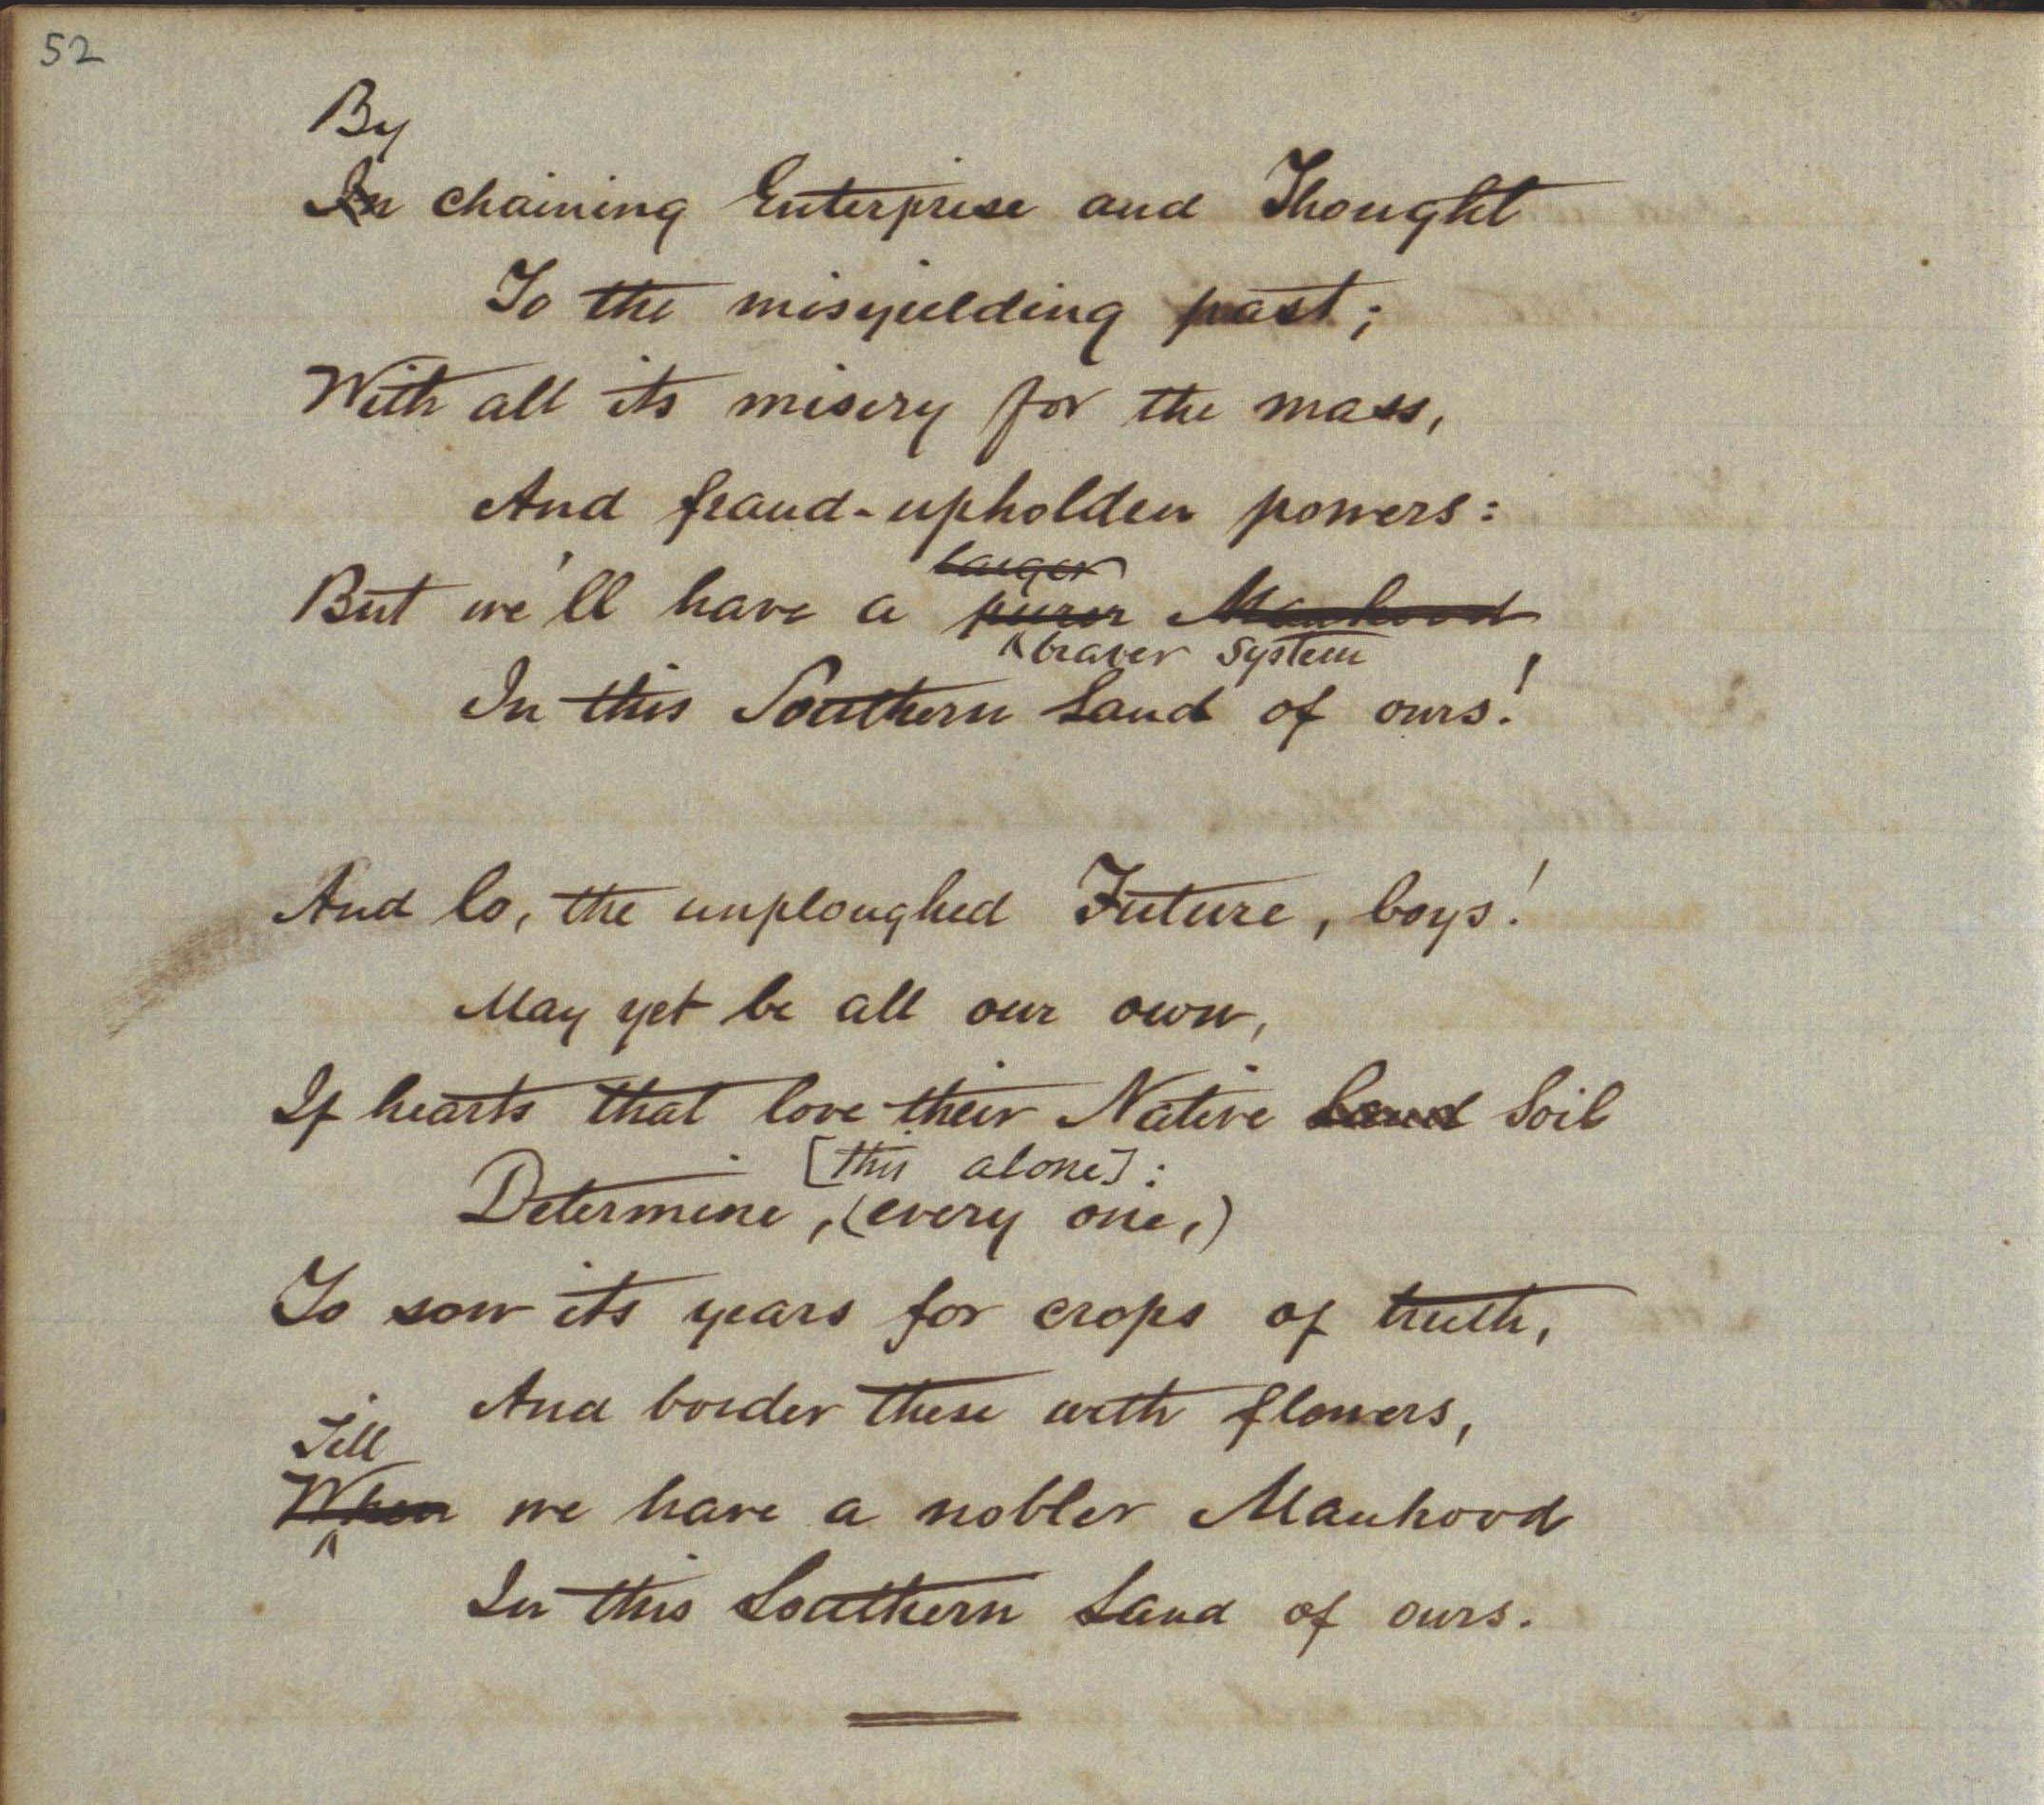 52
By
In chaining Enterprise and Thought
To the misyielding past;
With all its misery for the mass,
And fraud-upholden powers:
larger
But we'll have a purer Manhood
braver System
In this Southern Land of ours!
And lo, the unploughed Future, boys!
May yet be all our own,
If hearts that love their Native Land Soil
[this alone]:
Determine, (every one,)
To sow its years for crops of truth,
And border these with flowers,
Till
When we have a nobler Manhood
In this Southern Land of ours.